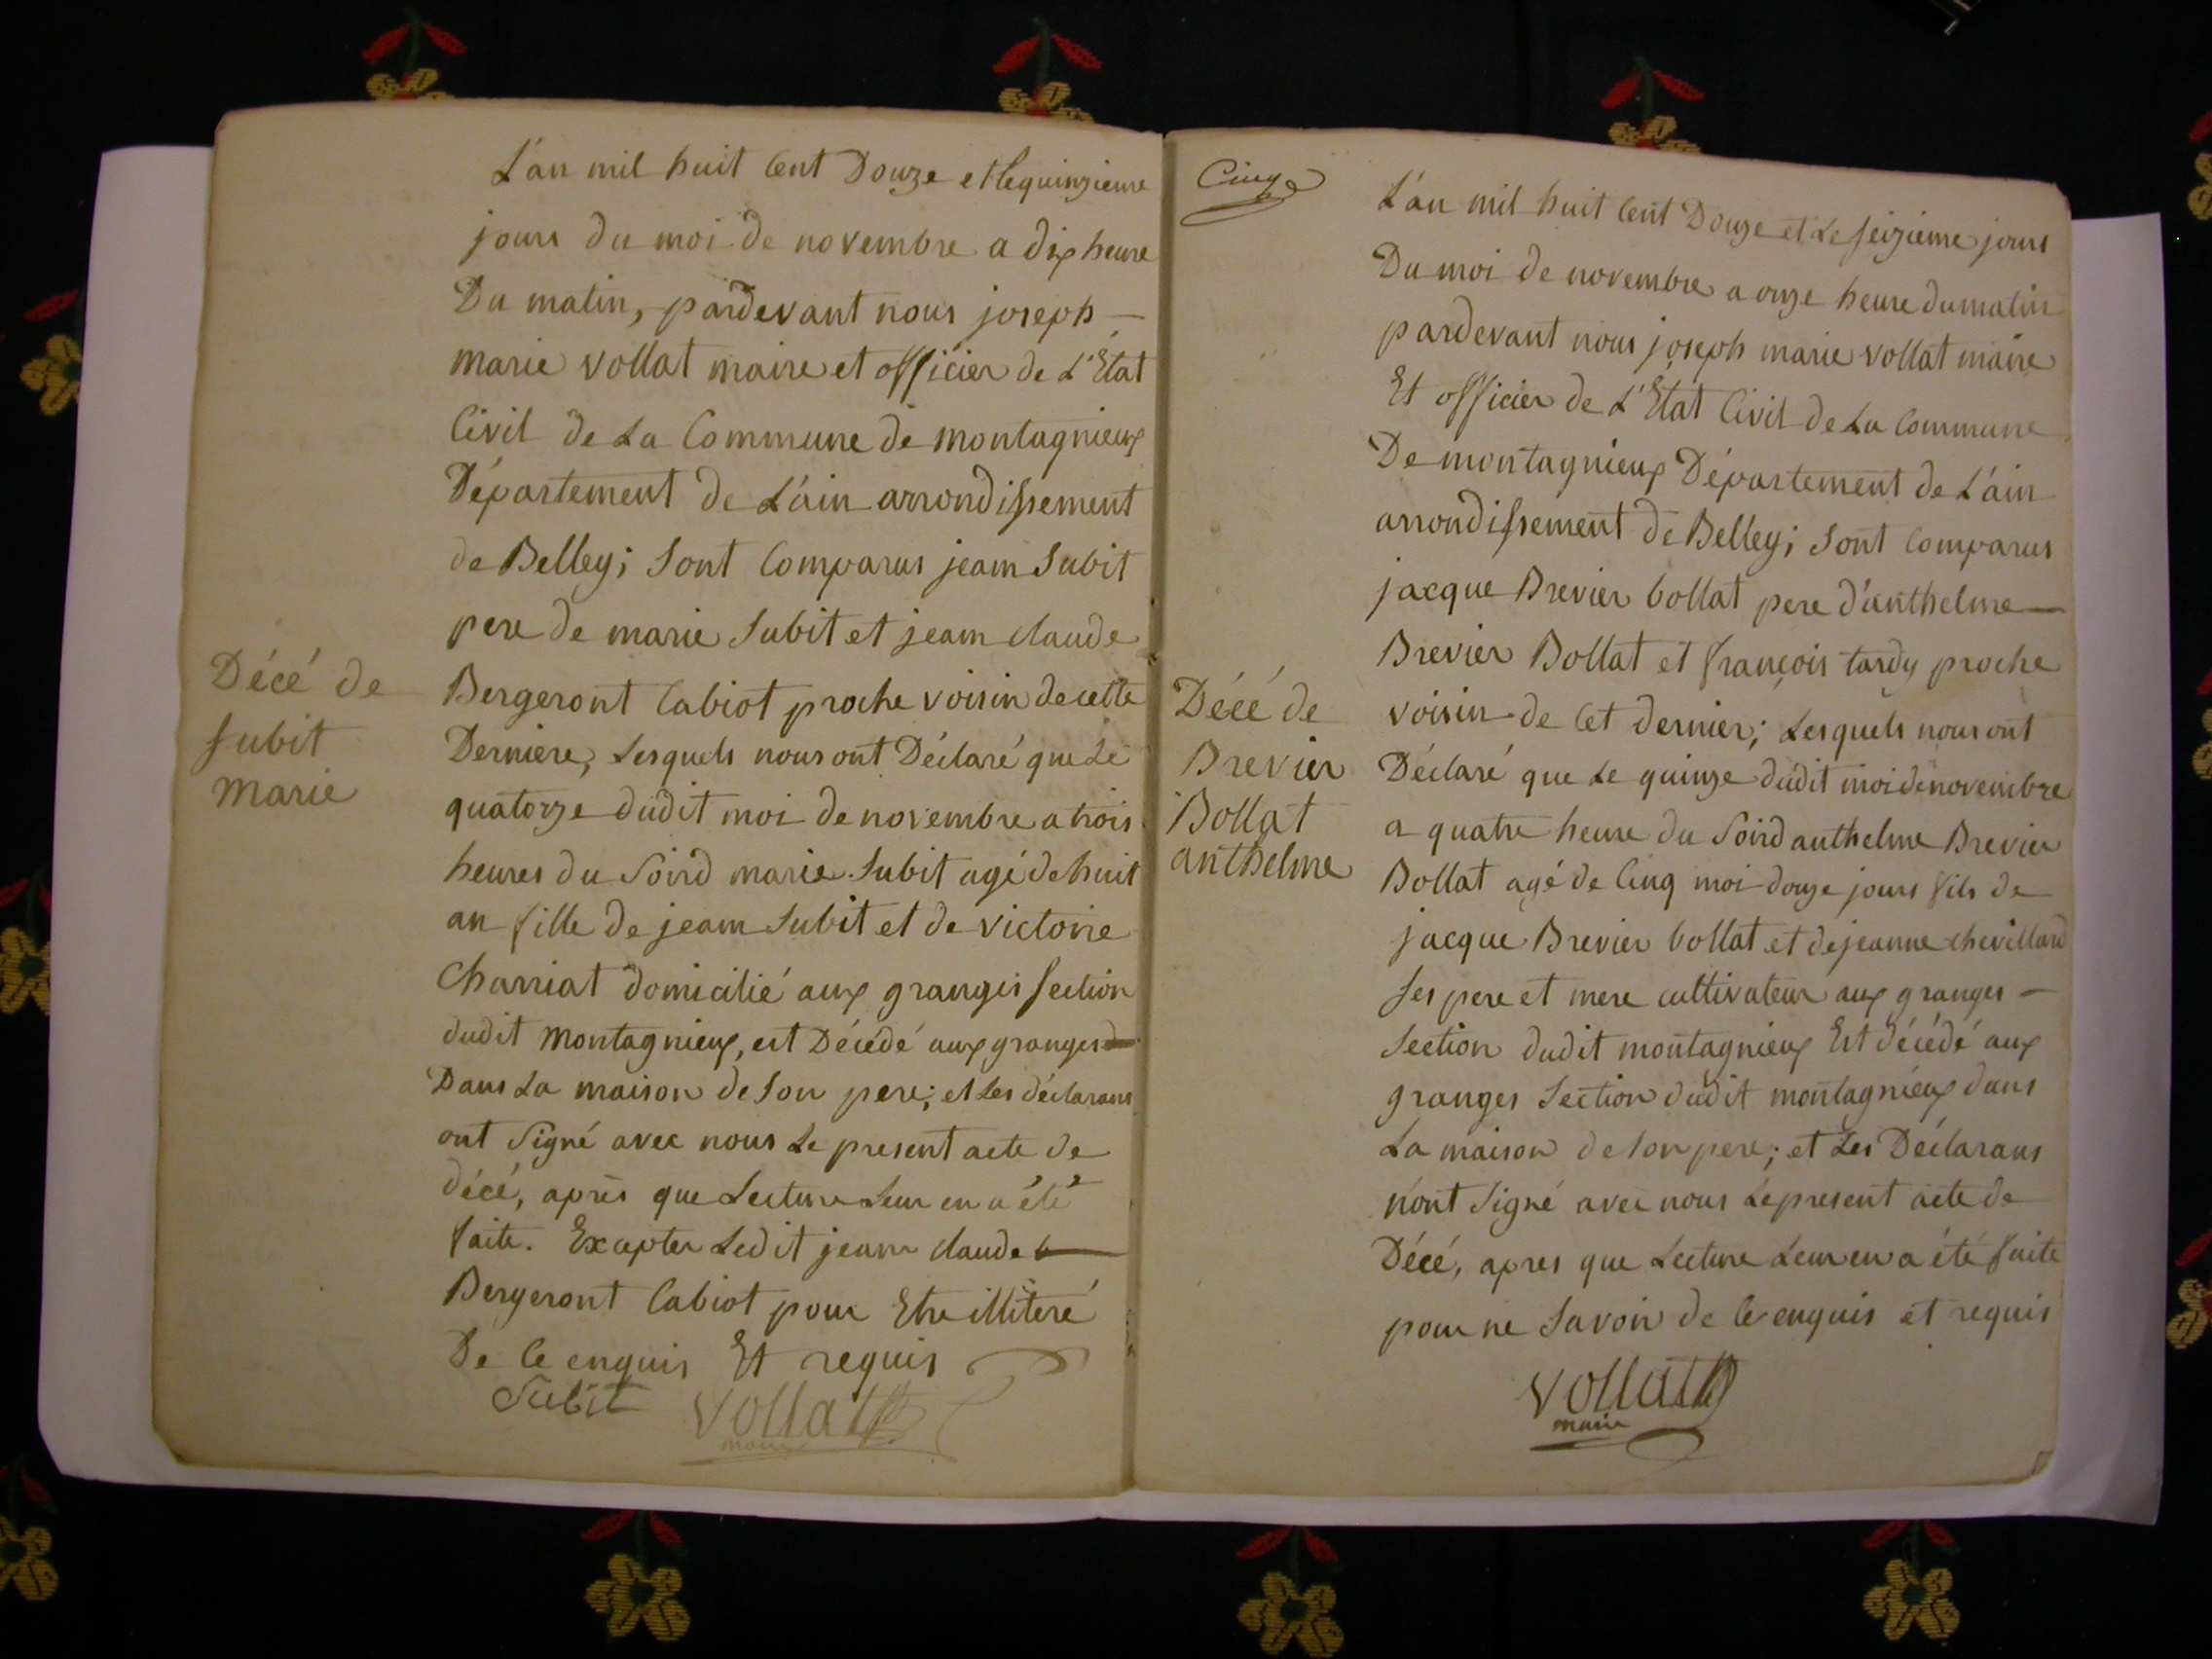 L'an mil huit Cent Douze et le quinzieme
jours du moi de novembre a dix heure
Du matin, pardevant nous joseph —
marie vollat maire et officier de L'Etat
Civil de La Commune de montagnieux
Département de L'ain arrondissement
de Belley; Sont Comparus jeam Subit
pere de marie Subit et jeam claude
Décé de
Subit
Marie
Bergeront Cabiot proche voisin de cette
Derniere, Lesquels nous ont Déclaré que Le
quatorze dudit moi de novembre a trois
heures du Soird marie Subit agé de huit
an fille de jeam Subit et de victoire
Charriat domicilié aux granges Section
dudit Montagnieux, est Décédé aux granges
Dans La maison de Son pere; et Les déclarans
ont Signé avec nous Le present acte de
décé, après que Lecture Leur en a été
faite. Excepter Ledit jeam claude
Bergeront Cabiot pour Etre illiteré
De Ce enquis Et requis
Subit vollat
maire
Cinq
L'an mil huit Cent Douze et Le Seizieme jours
Du moi de novembre a onze heure du matin
pardevant nous joseph marie vollat maire
Et officier de L'Etat Civil de La Commune
De montagnieux Département de L'ain
arrondissement de Belley; Sont Comparus
jacque Brevier bollat pere d'anthelme —
Brevier Bollat et françois tardy proche
Décé de
Brevier
Bollat
anthelme
voisin de Cet dernier; Lesquels nous ont
Déclaré que Le quinze dudit moi de novembre
a quatre heure du Soird anthelme Brevier
Bollat agé de Cinq moi douze jours fils de
jacque Brevier bollat et de jeanne chevillard
Ses pere et mere cultivateur aux granges —
Section dudit montagnieux Est décédé aux
granges Section dudit montagnieux dans
La maison de Son pere; et Les Déclarans
n'ont Signé avec nous Le present acte de
Décé, apres que Lecture Leur en a été faite
pour ne Savoir de Ce enquis et requis
vollat
maire